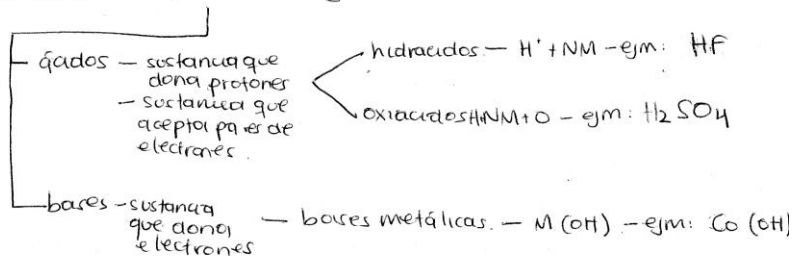 ácidos – sustancia que
dona protones
– sustancia que
acepta pares de
electrones.
hidracidos – H⁺ + NM – ejm: HF
oxiacidos H+NM+O – ejm: H₂SO₄
bases – sustancia
que dona
electrones
– bases metálicas. – M(OH) – ejm: Co(OH)